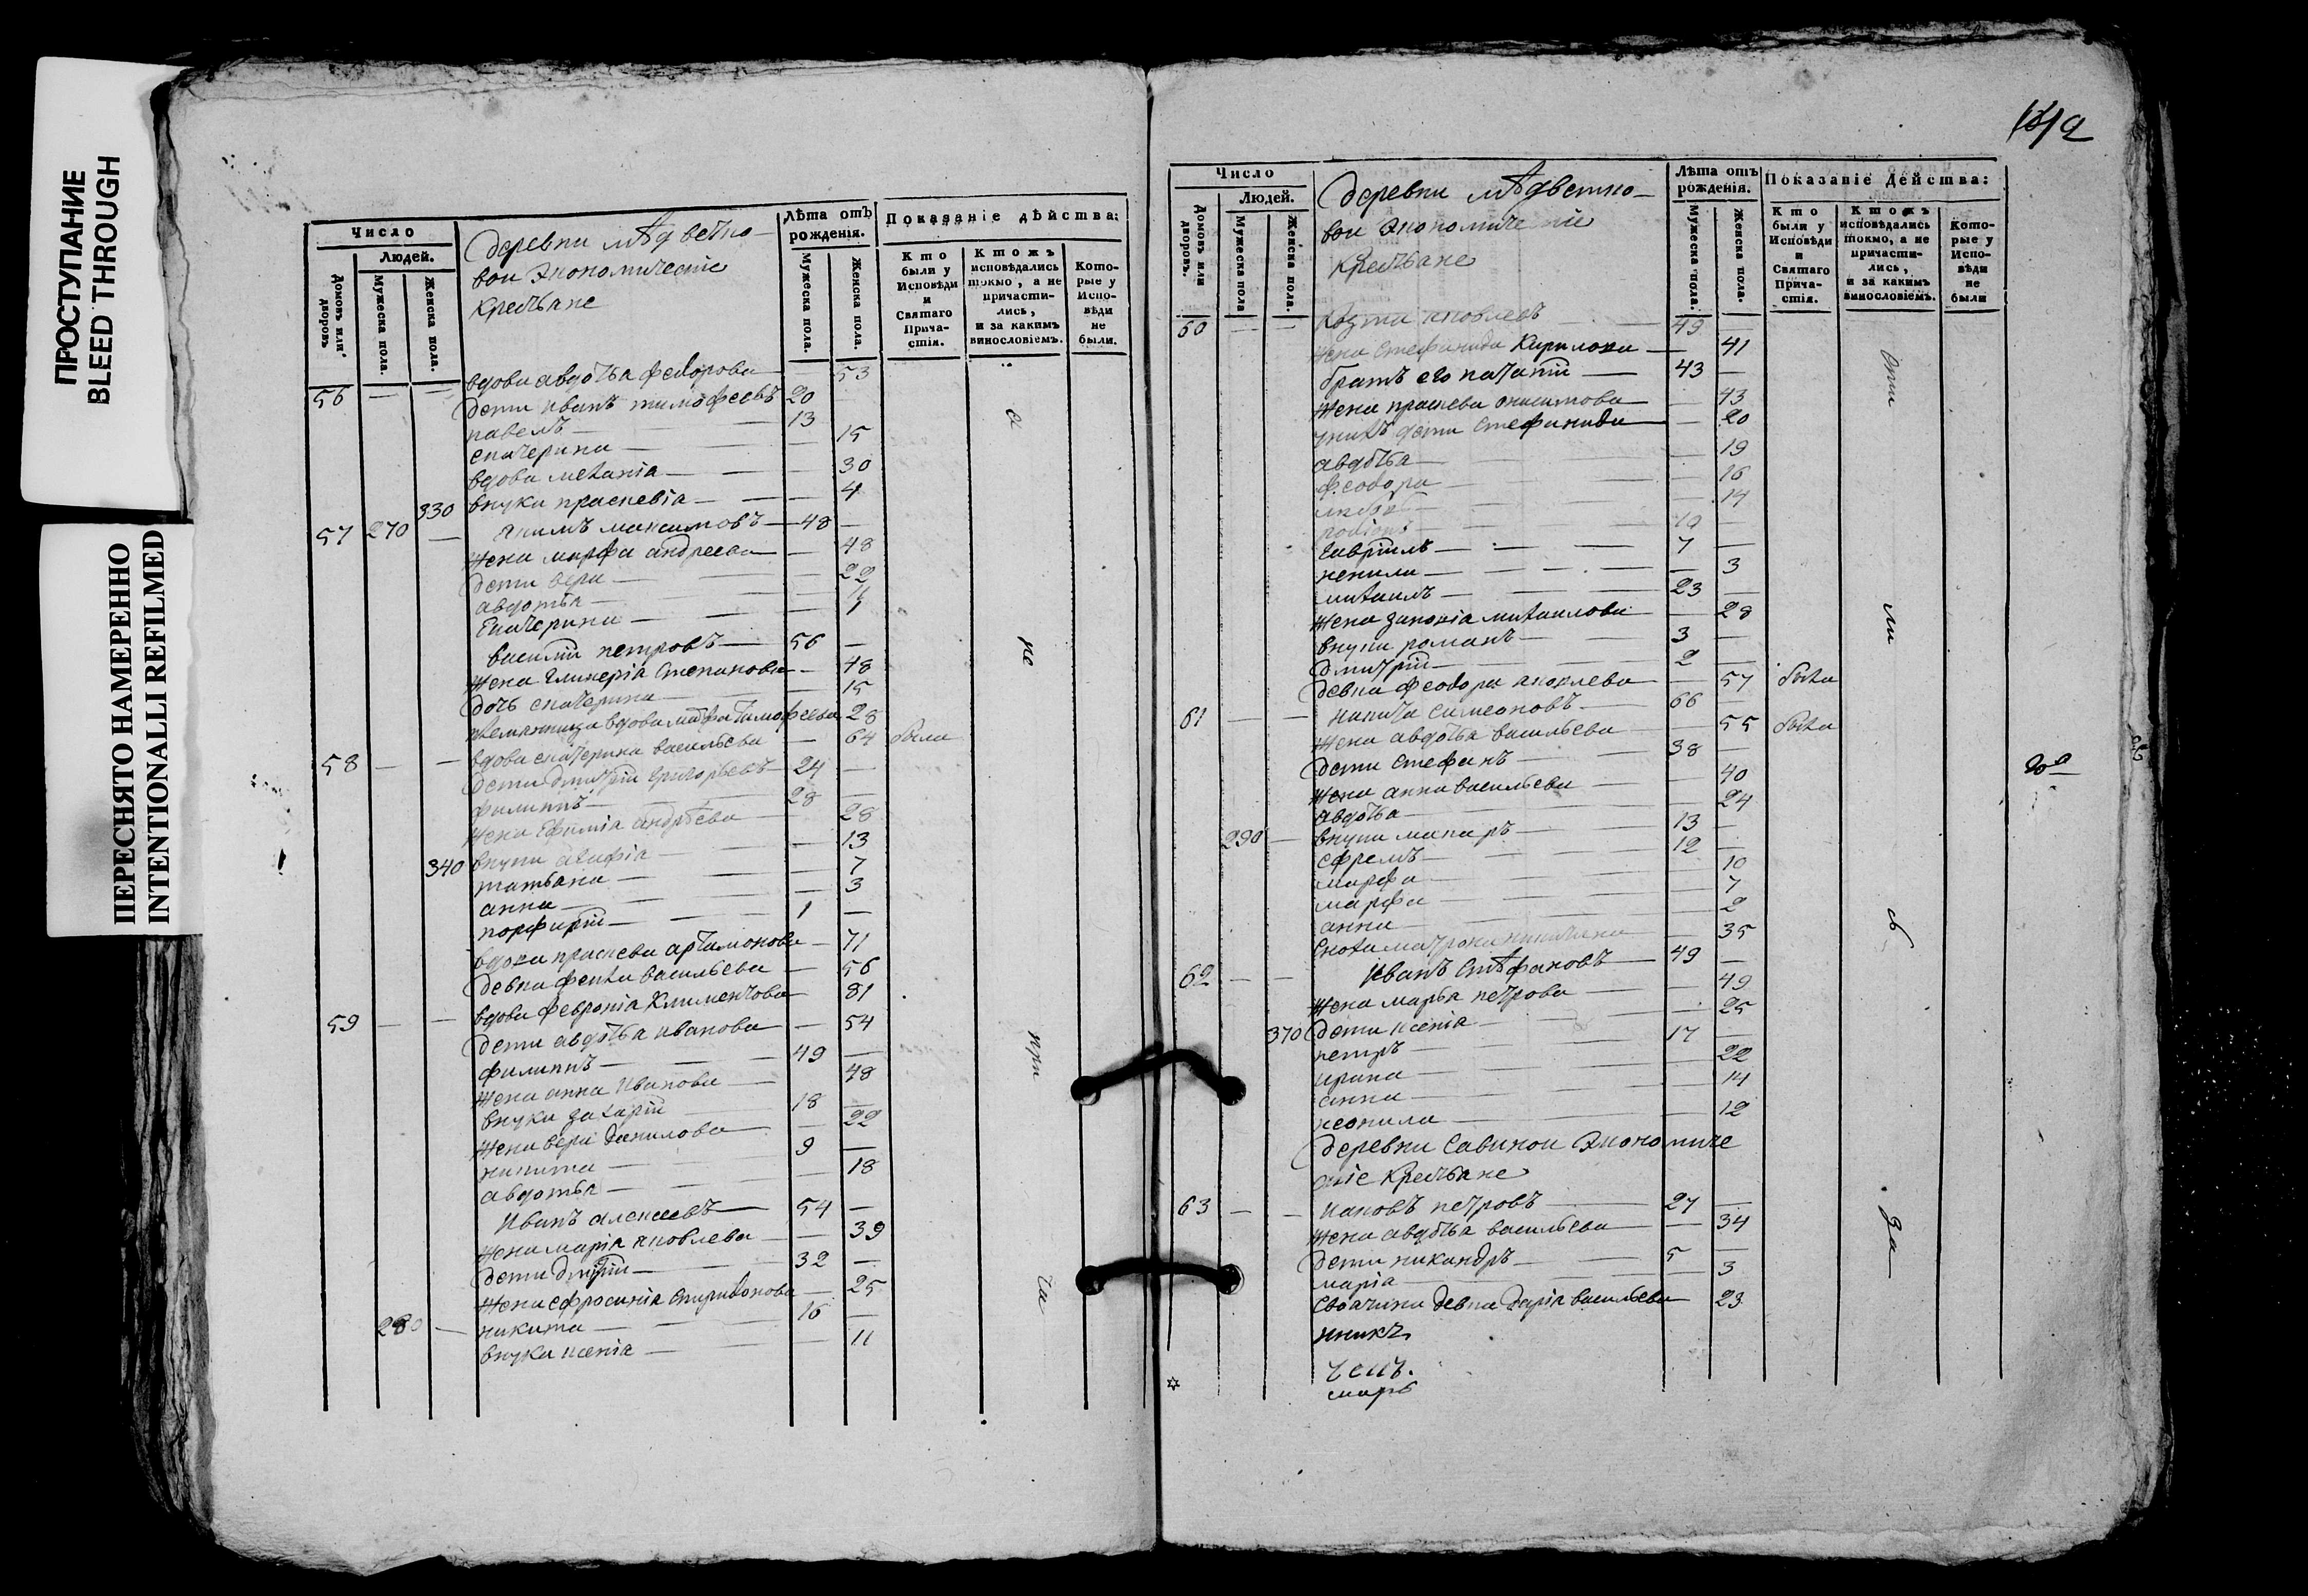 ПРОСТУПАНИЕ
BLEED THROUGH
ПЕРЕСНЯТО НАМЕРЕННО
INTENTIONALLI REFILMED
Число
Людей.
Домовъ или дворовъ
Мужеска пола.
Женска пола.
Деревни мѣдветко-
вои экономические
Крестьяне
Лѣта отъ рожденія.
Мужеска пола.
Женска пола.
Показаніе дѣйства:
Кто были у Исповѣди и Святаго Прича-стія.
Ктожъ исповѣдались токмо, а не причасти-лись, и за какимъ винословіемъ.
Кото-рые у Испо-вѣди не были.
56 — — вдова авдотья федорова — 53
дети иванъ тимофеевъ 20
павелъ — 13
екатерина — 15
вдова меланіа — 30
330 внука праскевіа — 4
57 270 — якимъ максимовъ — 48 —
жена марфа андреева — 48
дети вера — 22
авдотья —
Екатерина — 1
василій петровъ — 56 —
жена гликеріа степанова — 48
дочь екатерина — 15
племянница вдова марфа тимофеева 28
58 — — вдова екатерина васильева — 64 была
дети дмитрій григорьевъ — 24 —
филиппъ — 28 —
жена Ефиміа андреева — 28
340 внуки агафіа — 13
татьяна — 7
анна — 3
порфирій — 1 —
вдова праскева артамонова — 71
девка фекла васильева — 56
59 — — вдова февроніа Климентова — 81
дети авдотья иванова — 54
филиппъ — 49 —
жена анна Иванова — 48
внуки захарій 18 —
жена вера данилова — 22
никита — 9 —
авдотья — 18
Иванъ алексеевъ — 54 —
жена маріа яковлева — 39
дети дмитрій — 32 —
жена ефросиніа спиридонова — 25
280 — никита — 16 —
внука ксеніа — 11
а
не
при
ча
Число
Людей.
Домовъ или дворовъ.
Мужеска пола
Женска пола.
Деревни мѣдветко-
вои экономические
Крестьяне
Лѣта отъ рожденія.
Мужеска пола.
Женска пола.
Показаніе Дѣйства:
Кто были у Исповѣди и Святаго Прича-стія.
Ктожъ исповѣдались токмо, а не причасти-лись, и за какимъ винословіемъ.
Кото-рые у Испо-вѣди не были
60 — — Козма яковлевъ — 49
жена стефанида Кирилова — 41
братъ его игнатій — 43 —
жена праскева онисимова — 43
у нихъ дети стефанида — 20
авдотья — 19
феодора — 16
14
родіонъ — 10 —
гавріилъ — 7 —
ненила — 3
михаилъ — 23 —
жена михаилова — 28
внуки романъ — 3 —
дмитрій — 2 —
девка феодора яковлева — 57 была
61 — — никита симеоновъ — 66 —
жена авдотья васильева — 55 была
дети стефанъ — 38 —
жена анна васильева — 40
авдотья — 24
290 — внуки макаръ — 13 —
ефремъ — 12 —
марфа — 10
марфа — 7
анна — 2
сноха матрона — 35
62 — — Иванъ стѣфановъ — 49 —
жена марья петрова — 49
370 дети ксеніа — 25
петръ — 17 —
ирина — 22
анна — 14
неонила — 12
Деревни Савинои экономиче
скіе Крестьяне
63 — — иаковъ петровъ — 27 —
жена авдотья васильева — 34
дети никандръ — 5 —
маріа — 3
своячина девка даріа васильева — 23